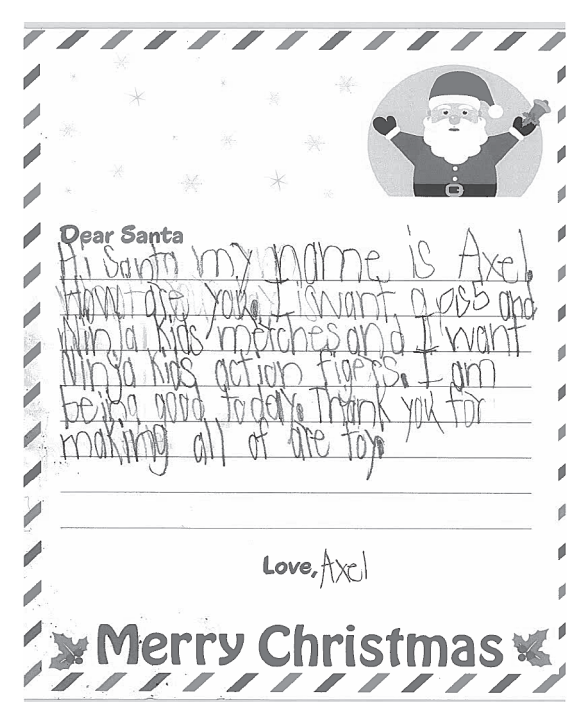 Dear Santa
Hi Santa my name is Axel.
How are you. I want a and
Ninja Kids metches and I want
Ninja Kids action figers. I am
being good today. Thank you for
making all of are toys
Love, Axel
Merry Christmas